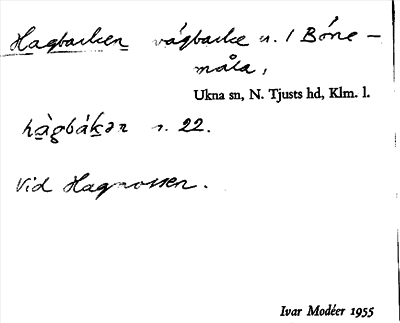 Hagbacken vägbacke n. / Båne-
måla,
Ukna sn, N. Tjusts hd, Klm. l.
hàgbák̲ən r. 22.
Vid Hagmossen.
Ivar Modéer 1955